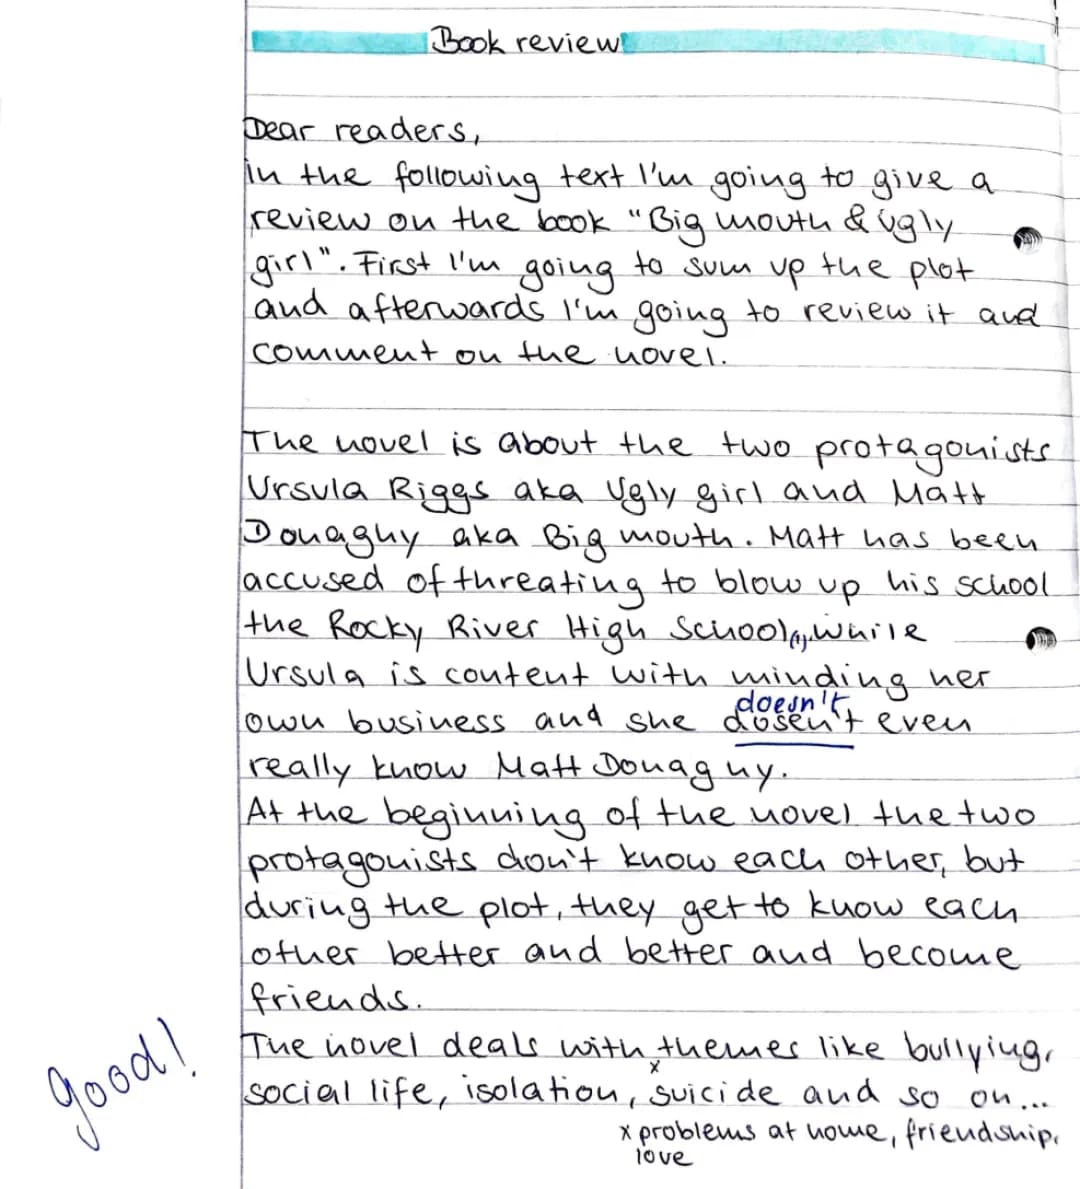 Book review
Dear readers,
in the following text I'm going to give a
review on the book "Big mouth & Ugly
girl". First I'm going to sum up the plot
and afterwards I'm going to review it and
comment on the novel.
The novel is about the two protagonists
Ursula Riggs aka Ugly girl and Matt
Donaghy aka Big mouth. Matt has been
accused of threating to blow up his school
the Rocky River High School(,), while
Ursula is content with minding her
doesn't
own business and she dosen't even
really know Matt Donaghy.
At the beginning of the novel the two
protagonists don't know each other, but
during the plot, they get to know each
other better and better and become
friends.
good!
The novel deals with themes like bullying,
social life, isolation, x suicide and so on...
x problems at home, friendship,
love